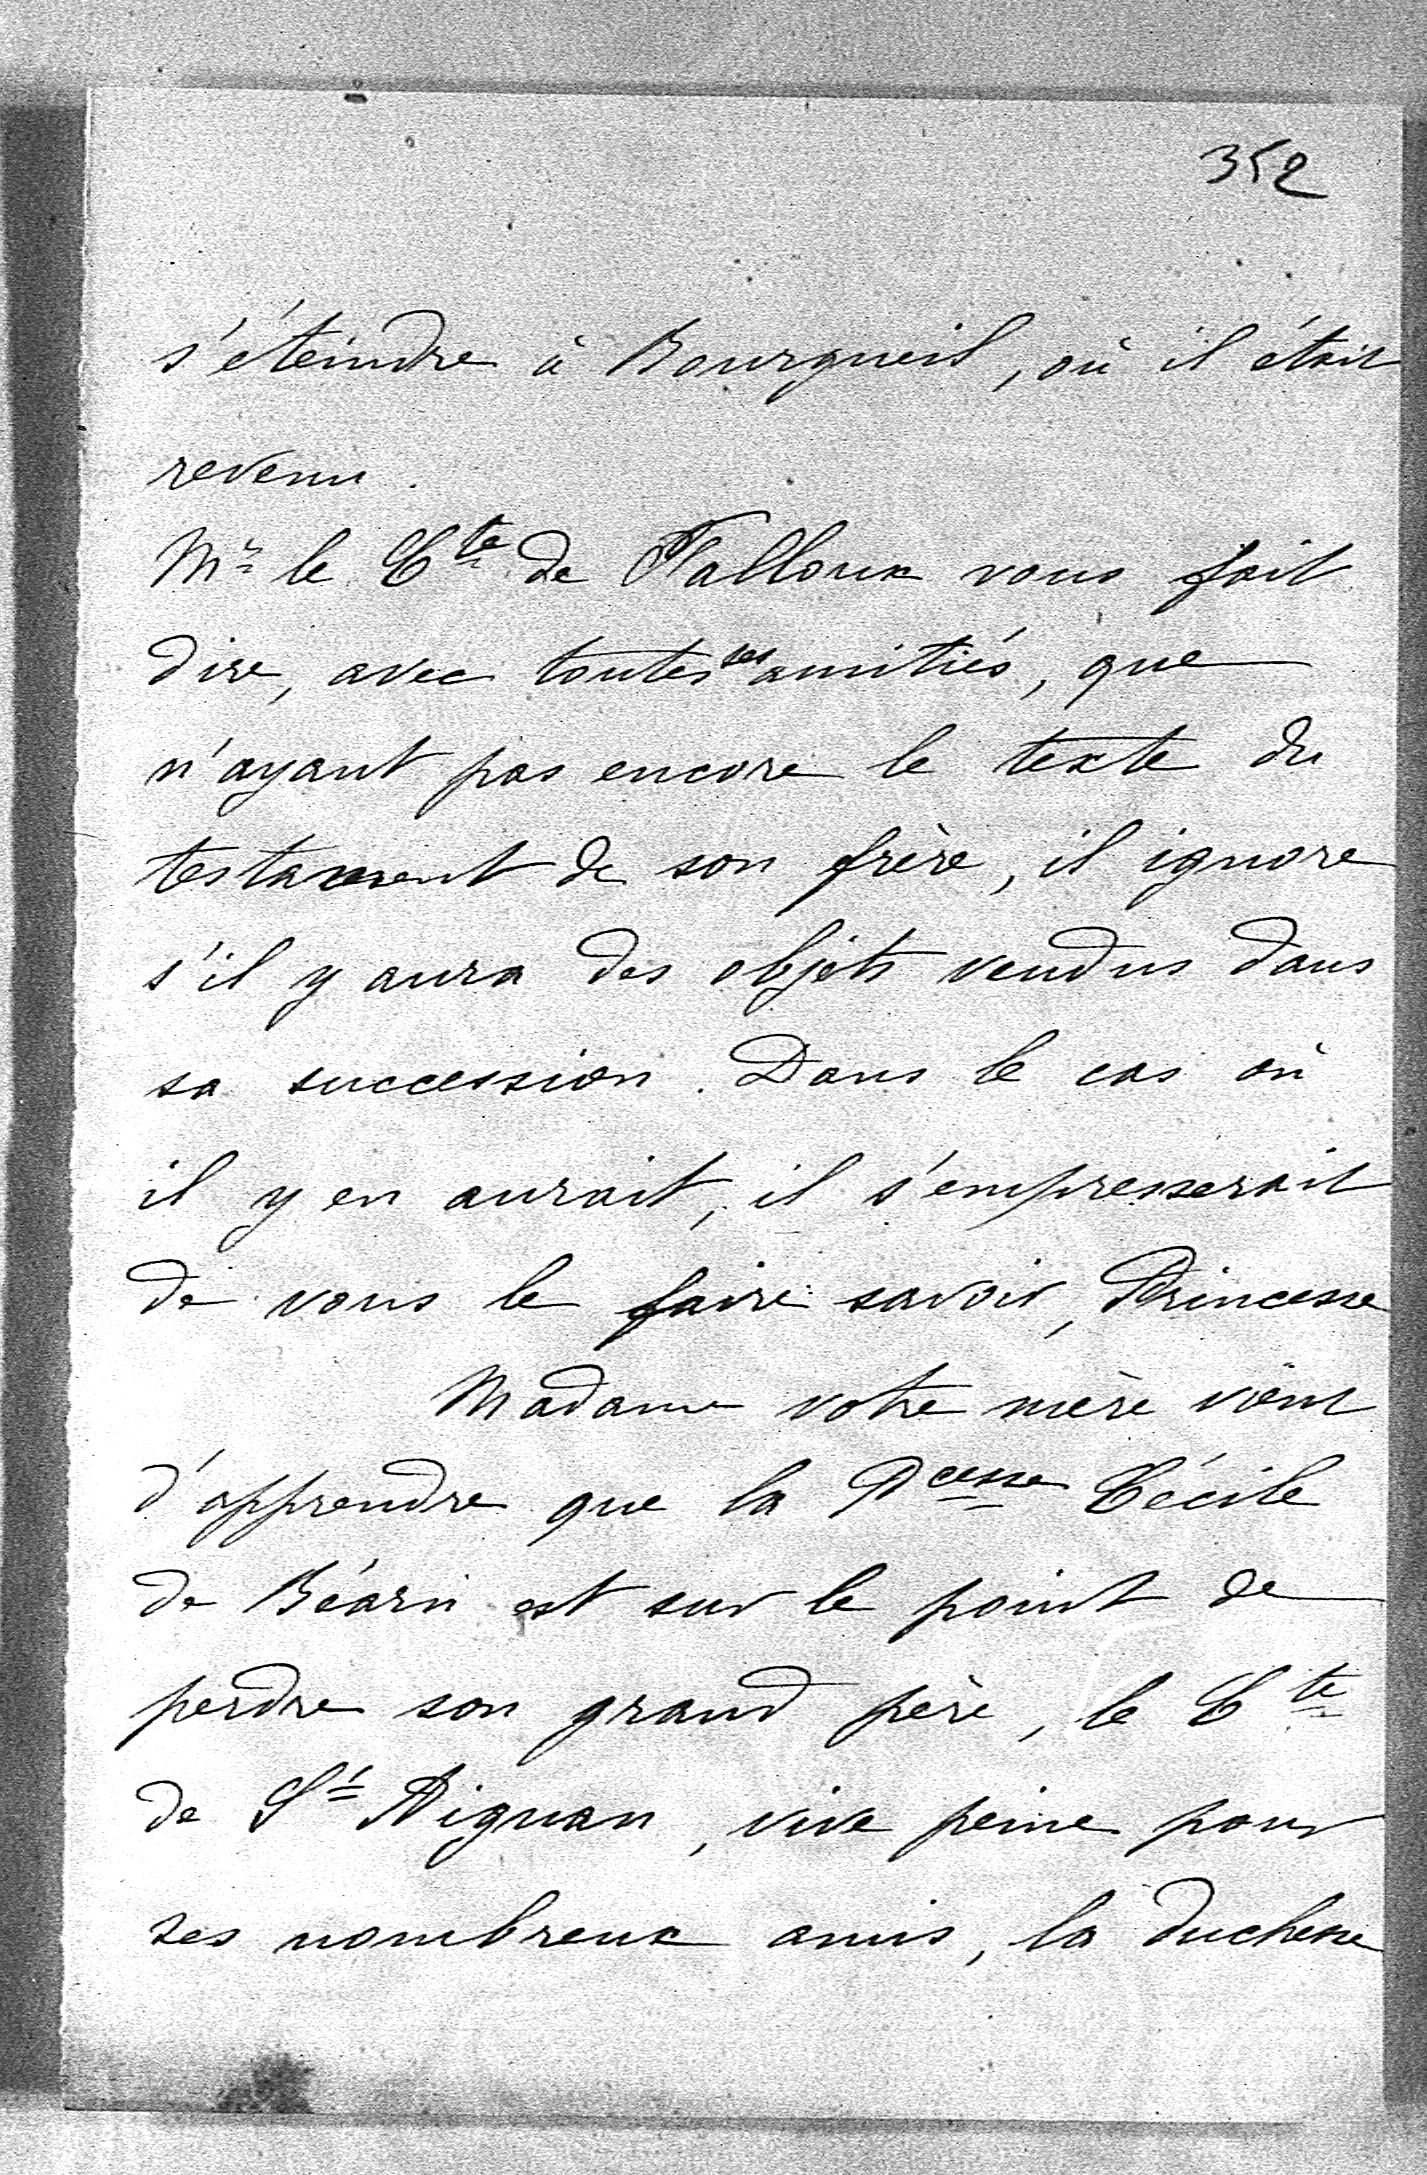 352
s'éteindre à Bourgueil, où il était
revenu.
Mr le Cte de Falloux vous fait
dire, avec toutes ses amitiés, que
n'ayant pas encore le texte du
testament de son frère, il ignore
s'il y aura des objets vendus dans
sa succession. Dans le cas où
il y en aurait, il s'empresserait
de vous le faire savoir, Princesse
Madame votre mère vient
d'apprendre que la Pcesse Cécile
de Béarn est sur le point de
perdre son grand père, le Cte
de St Aignan, vive peine pour
ses nombreux amis, la duchesse